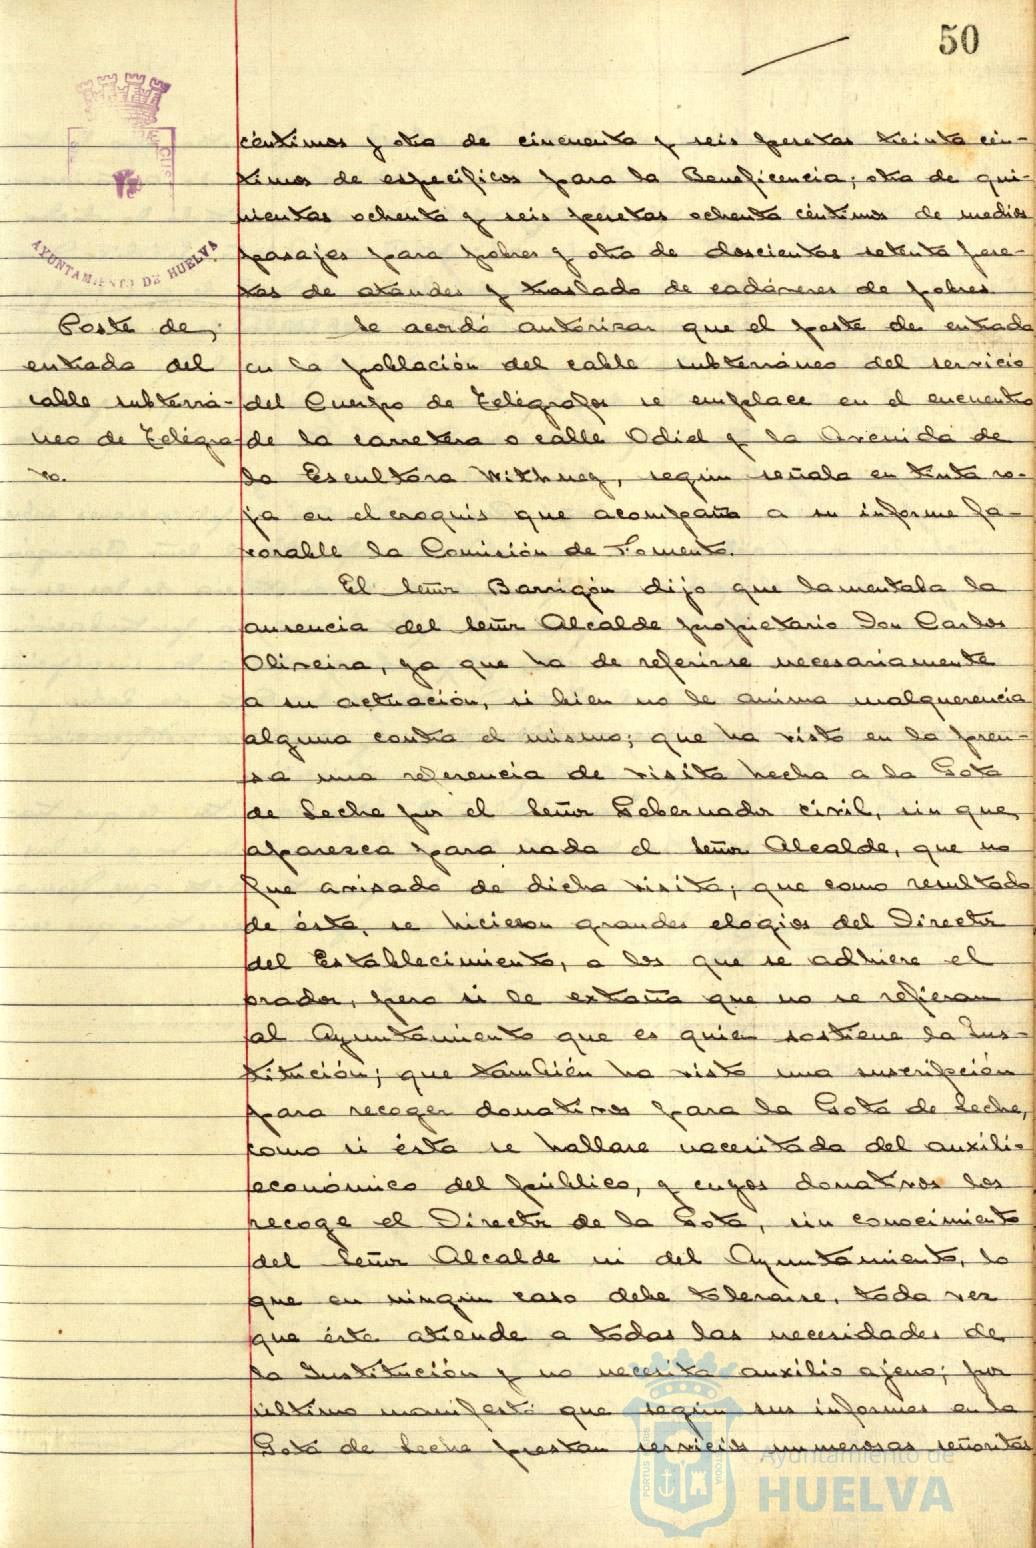 50
céntimos y otra de cincuenta y seis pesetas treinta cén-
timos de específicos para la Beneficencia; otra de qui-
nientas ochenta y seis pesetas ochenta céntimos de medios
pasajes para pobres y otra de doscientas setenta pese-
tas de ataudes y traslado de cadáveres de pobres
AYUNTAMIENTO DE HUELVA
Poste de
entrada del
cable subterrá-
neo de Telégra-
fo.
Se acordó autorizar que el poste de entrada
en la población del cable subterráneo del servicio
del Cuerpo de Telégrafos se emplace en el encuentro
de la carretera o calle Odiel y la Avenida de
la Escultora Withney, según señala en tinta ro-
ja en el croquis que acompaña a su informe fa-
vorable la Comisión de Fomento.
El Señor Barrigón dijo que lamentaba la
ausencia del Señor Alcalde propietario Don Carlos
Oliveira, ya que ha de referirse necesariamente
a su actuación, si bien no le anima malquerencia
alguna contra el mismo; que ha visto en la pren-
sa una referencia de visita hecha a la Gota
de Leche por el Señor Gobernador civil, sin que
aparezca para nada el Señor Alcalde, que no
fue avisado de dicha visita; que como resultado
de ésta, se hicieron grandes elogios del Director
del Establecimiento, a los que se adhiere el
orador, pero si le extraña que no se refieran
al Ayuntamiento que es quien sostiene la Ins-
titución; que también ha visto una suscripción
para recoger donativos para la Gota de Leche,
como si ésta se hallase necesitada del auxilio
económico del público, y cuyos donativos los
recoge el Director de la Gota, sin conocimiento
del Señor Alcalde ni del Ayuntamiento, lo
que en ningún caso debe tolerarse, toda vez
que éste atiende a todas las necesidades de
la Institución y no necesita auxilio ajeno; por
último manifestó que según sus informes en la
Gota de Leche prestan servicios numerosas señoritas
Ayuntamiento de
HUELVA